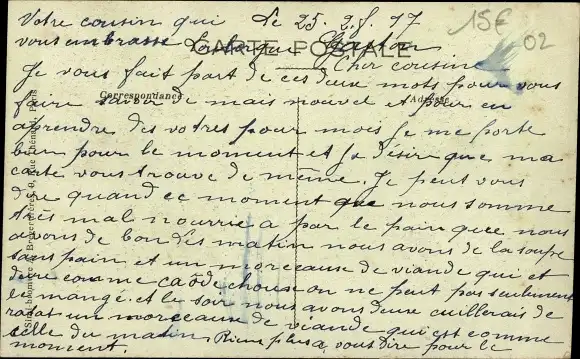 Votre cousin qui
vous embrasse
Le 25. 2. 17
15€
02
CARTE POSTALE
Gaston
Cher cousine
Je vous fait part de ces deux mots pour vous
faire savoir de mais nouvel et pour en
Correspondance
Adresse
aprendre des votres pour mois je me porte
bien pour le moment et je désir que ma
carte vous trouve de même. Je peut vous
dire quand ce moment que nous somme
très mal nourrie a par le pain que nous
avons de bon des matin nous avons de la soupe
sans pain et un morceause de viande qui et
dure comme chouse on ne peut pas seulement
le mangé. et le soir nous avons deuse cuillerais de
rata et un morceause de viande qui est comme
celle du matin Rien plus a vous dire pour le
moment.